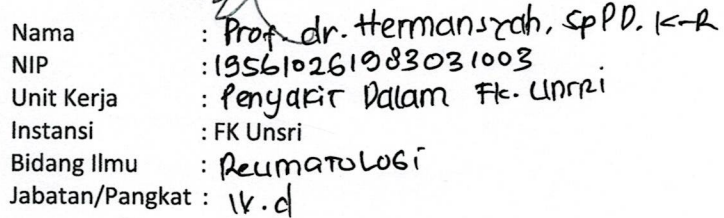 Nama : Prof. dr. Hermansyah, SpPD. K-R
NIP : 195610261983031003
Unit Kerja : Penyakit Dalam FK. Unsri
Instansi : FK Unsri
Bidang Ilmu : Reumatologi
Jabatan/Pangkat : IV.d